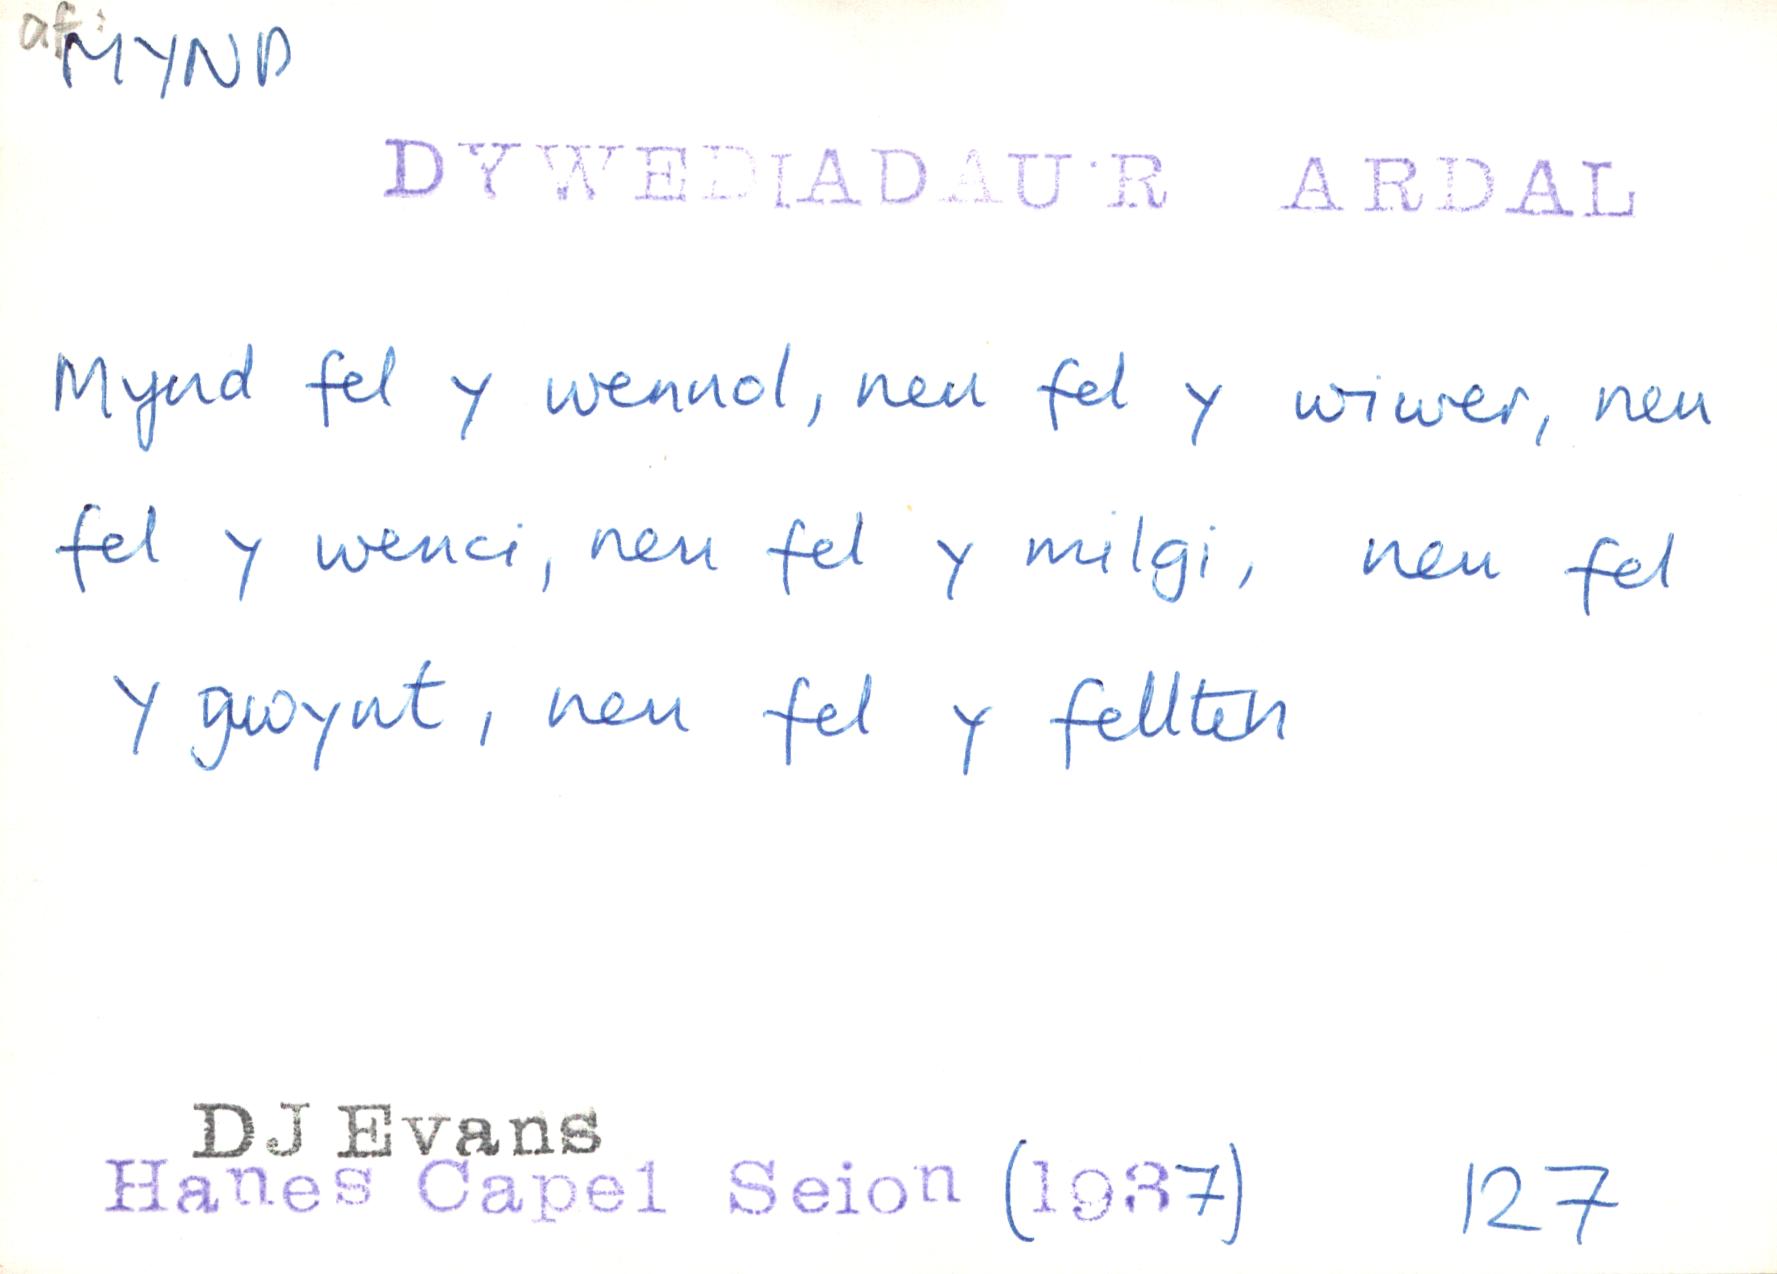 af:
MYND
DYWEDIADAU'R ARDAL
Mynd fel y wennol, neu fel y wiwer, neu
fel y wenci, neu fel y milgi, neu fel
y gwynt, neu fel y fellten
DJ Evans
Hanes Capel Seion (1937) 127